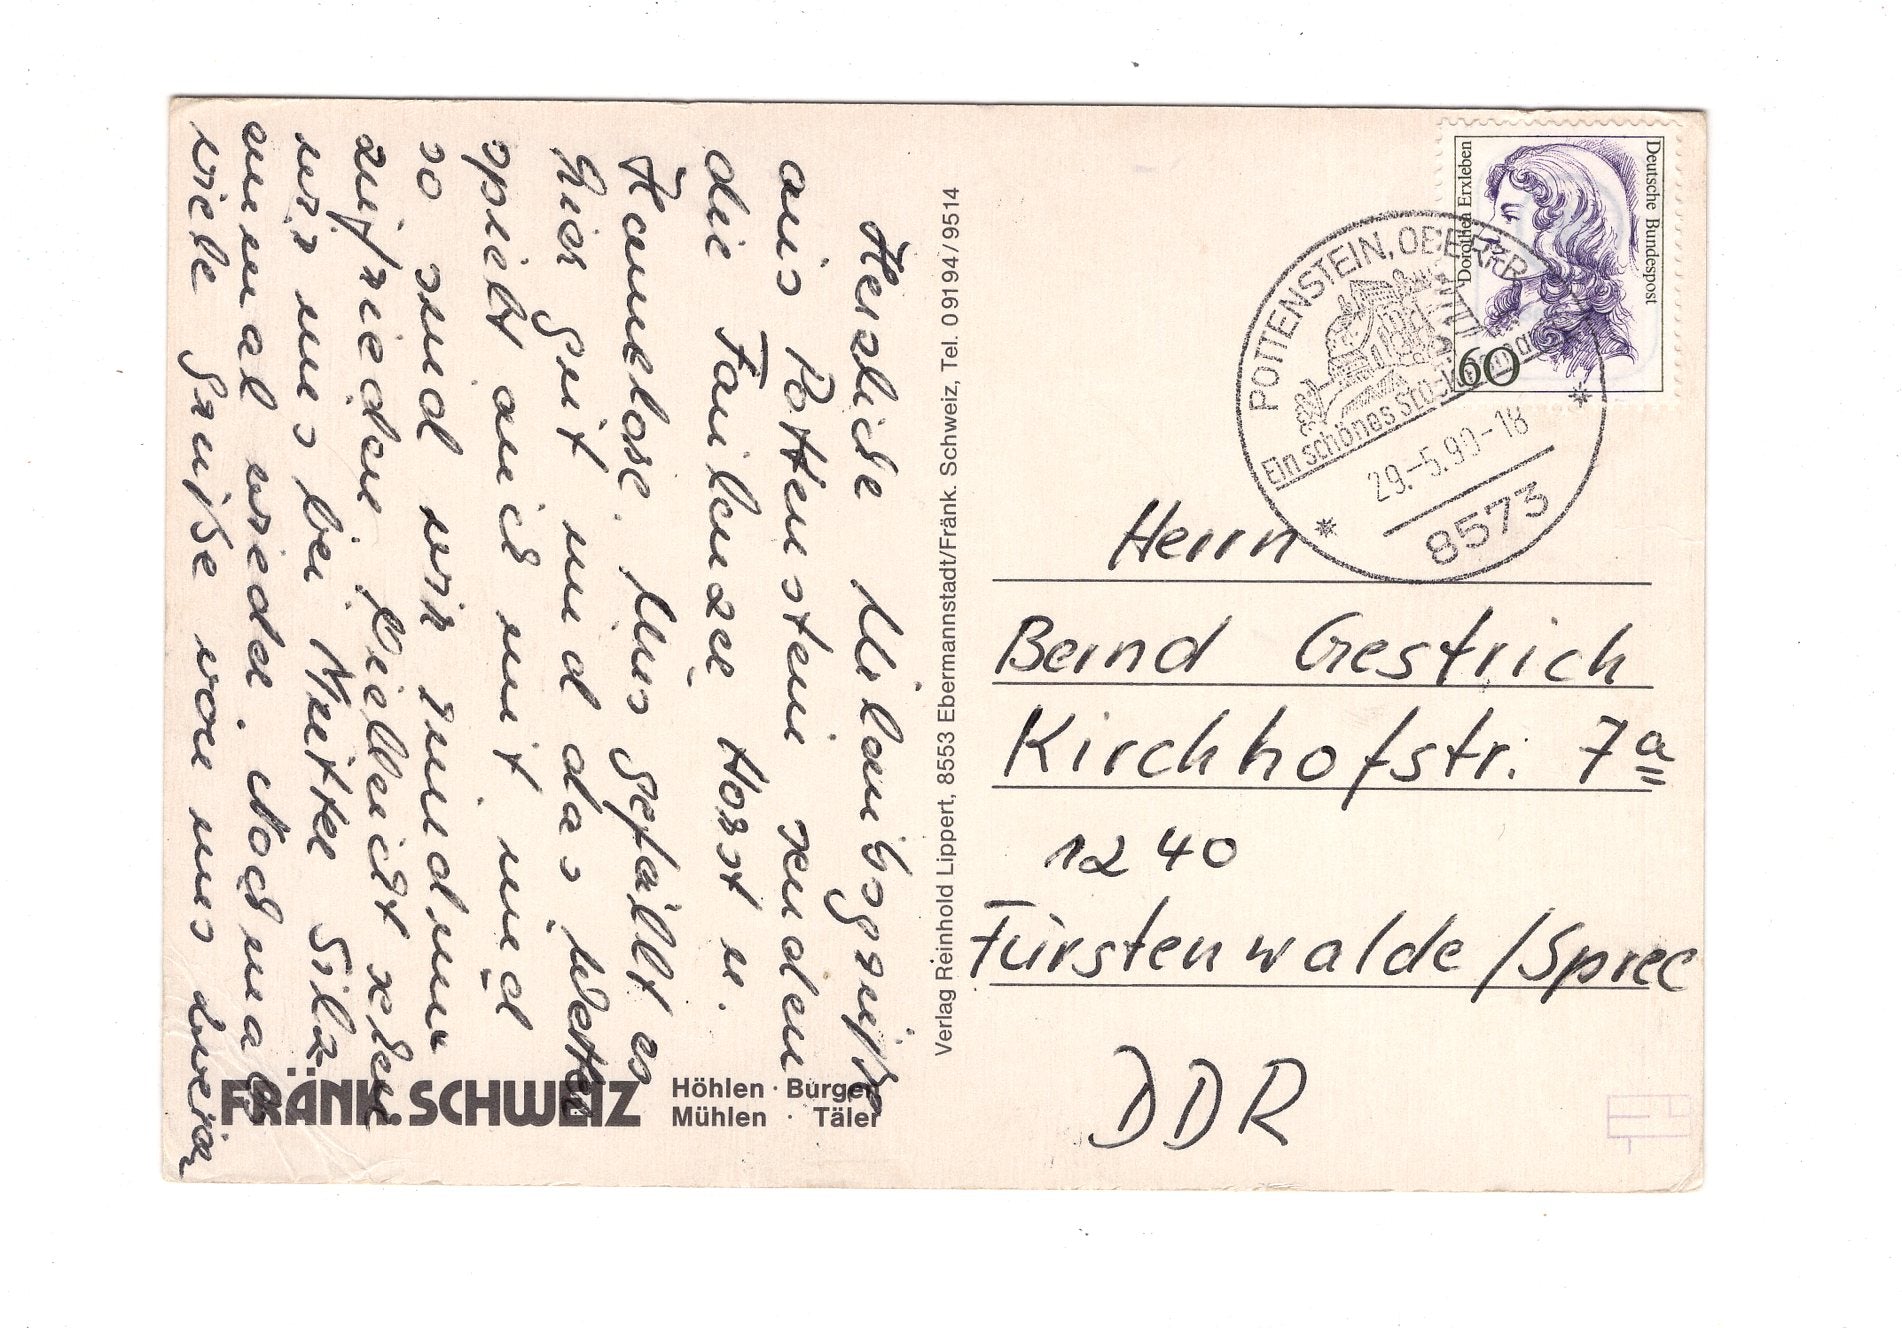 Herzliche Urlaubsgrüße
aus Pottenstein senden
die Faulenzer Horst u.
Hannelose. Uns gefällt es
hier gut und das Wetter
spielt auch mit und
so sind wir rundum
zufrieden. Vielleicht sehen
wir uns bei Mutter
einmal wieder. Nochmals
viele Grüße von uns zweien
FRÄNK. SCHWEIZ
Höhlen · Burgen
Mühlen · Täler
Verlag Reinhold Lippert, 8553 Ebermannstadt/Fränk. Schweiz, Tel. 0 91 94 / 95 14
Deutsche Bundespost
Dorothea Erxleben
60
POTTENSTEIN, OBERFR
Ein schönes
29.-5.90-18
8573
Herrn
Bernd Gestrich
Kirchhofstr. 7a
1240
Fürstenwalde/Spree
DDR